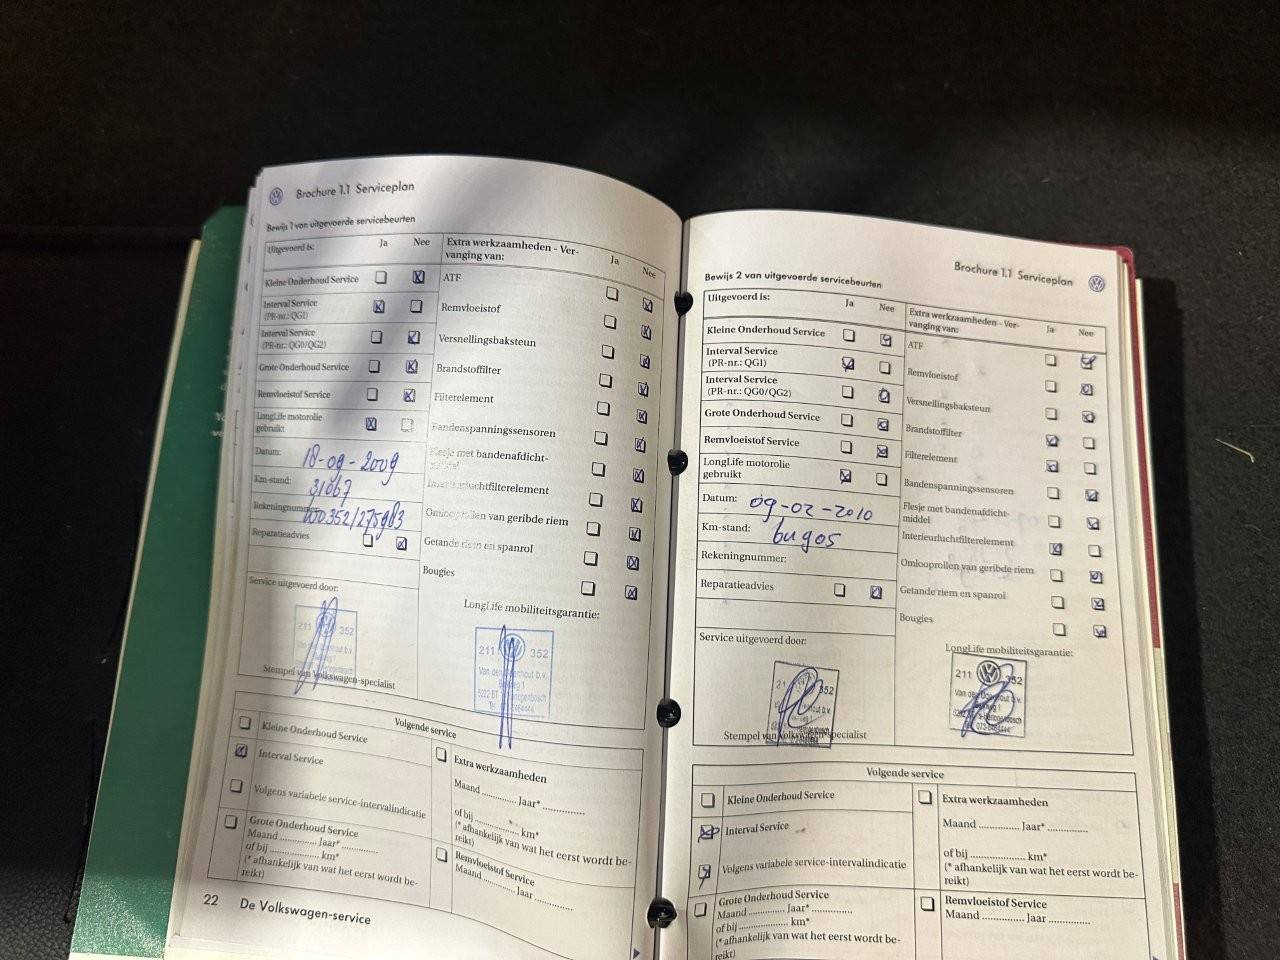 Brochure 1.1 Serviceplan
Bewijs 1 van uitgevoerde servicebeurten
Uitgevoerd is:
Ja
Nee
Kleine Onderhoud Service
Interval Service
(PR-nr.: QG1)
Interval Service
(PR-nr.: QG0/QG2)
Grote Onderhoud Service
Remvloeistof Service
LongLife motorolie
gebruikt
Datum: 18-09-2009
Km-stand: 31067
Rekeningnummer:
Reparatieadvies
Service uitgevoerd door:
211 352
Stempel van Volkswagen-specialist
Extra werkzaamheden - Ver-
vanging van:
Ja
Nee
ATF
Remvloeistof
Versnellingsbaksteun
Brandstoffilter
Filterelement
Bandenspanningssensoren
Flesje met bandenafdicht-
Interieurluchtfilterelement
Omlooprollen van geribde riem
Getande riem en spanrol
Bougies
LongLife mobiliteitsgarantie:
211 352
Volgende service
Kleine Onderhoud Service
Interval Service
Volgens variabele service-intervalindicatie
Grote Onderhoud Service
Maand ............. Jaar* .............
of bij .................... km*
(* afhankelijk van wat het eerst wordt be-
reikt)
Extra werkzaamheden
Maand ............. Jaar* .............
of bij .................... km*
(* afhankelijk van wat het eerst wordt be-
reikt)
Remvloeistof Service
Maand ............. Jaar .............
22 De Volkswagen-service
Brochure 1.1 Serviceplan
Bewijs 2 van uitgevoerde servicebeurten
Uitgevoerd is:
Ja
Nee
Kleine Onderhoud Service
Interval Service
(PR-nr.: QG1)
Interval Service
(PR-nr.: QG0/QG2)
Grote Onderhoud Service
Remvloeistof Service
LongLife motorolie
gebruikt
Datum: 09-02-2010
Km-stand:
Rekeningnummer:
Reparatieadvies
Service uitgevoerd door:
352
Stempel van Volkswagen-specialist
Extra werkzaamheden - Ver-
vanging van:
Ja
Nee
ATF
Remvloeistof
Versnellingsbaksteun
Brandstoffilter
Filterelement
Bandenspanningssensoren
Flesje met bandenafdicht-
middel
Interieurluchtfilterelement
Omlooprollen van geribde riem
Getande riem en spanrol
Bougies
LongLife mobiliteitsgarantie:
211 352
Volgende service
Kleine Onderhoud Service
Interval Service
Volgens variabele service-intervalindicatie
Grote Onderhoud Service
Maand ............. Jaar* .............
of bij .................... km*
(* afhankelijk van wat het eerst wordt be-
reikt)
Extra werkzaamheden
Maand ............. Jaar* .............
of bij .................... km*
(* afhankelijk van wat het eerst wordt be-
reikt)
Remvloeistof Service
Maand ............. Jaar .............